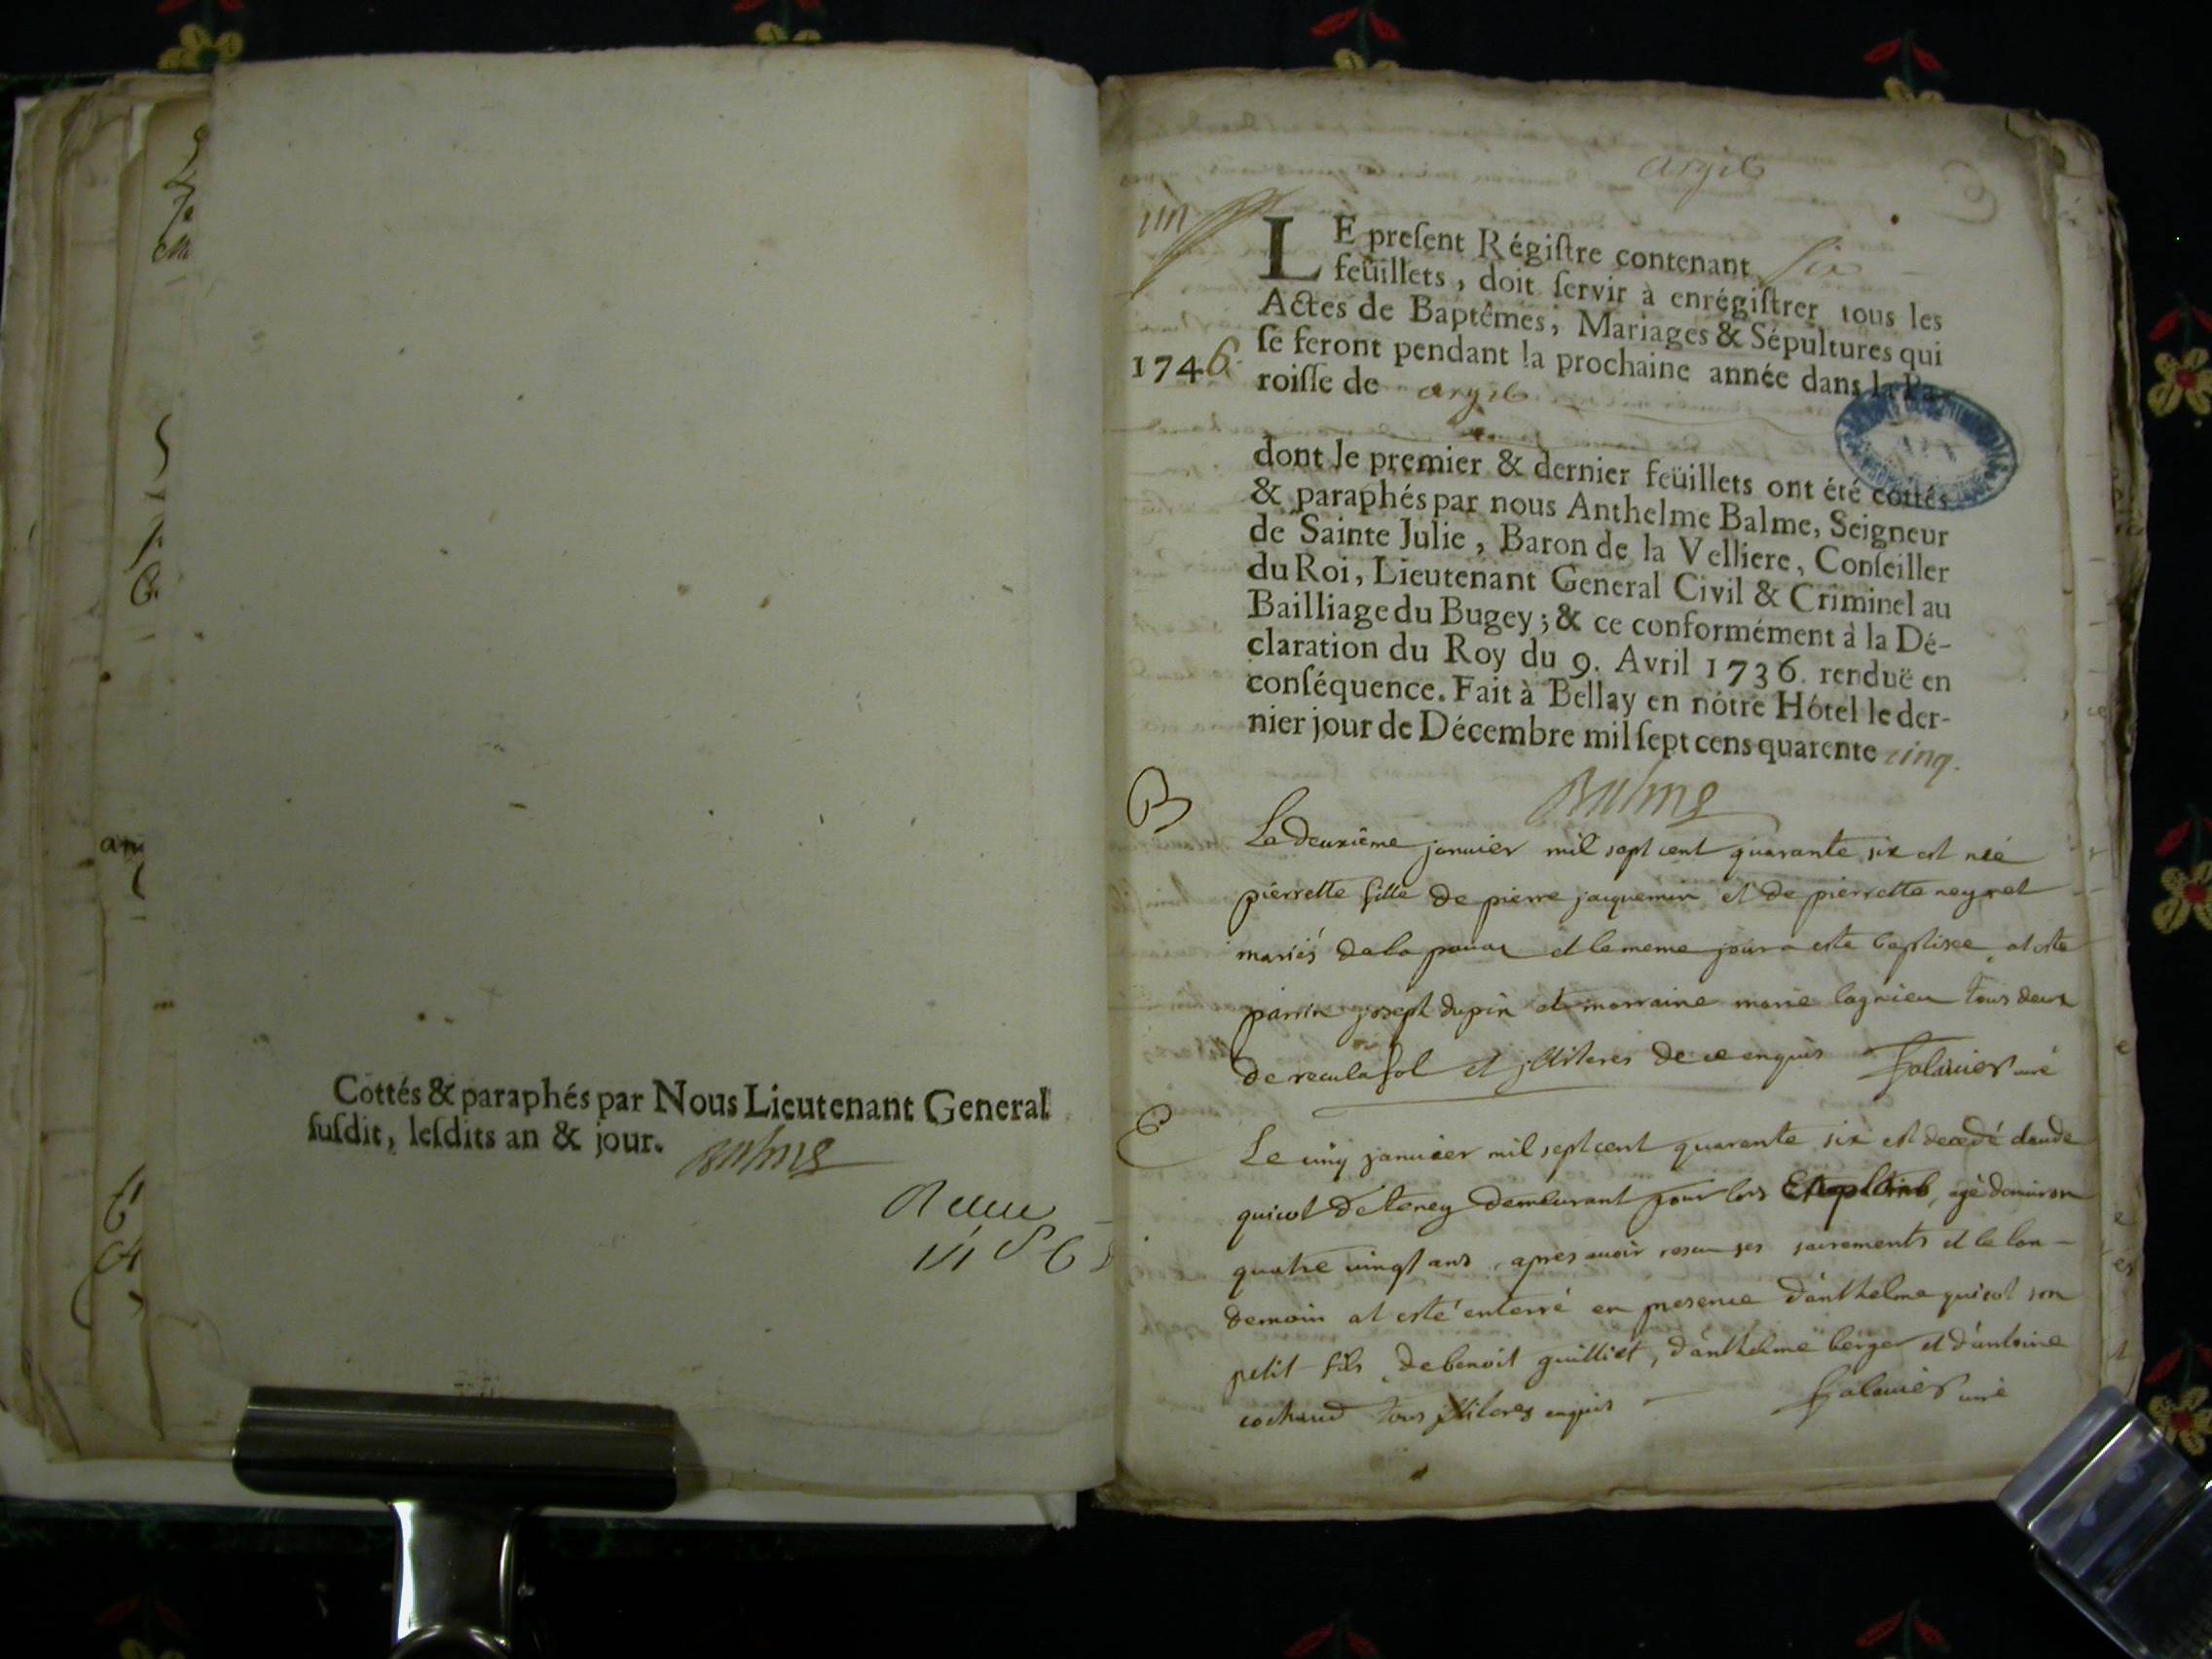 Cottés & paraphés par Nous Lieutenant General
susdit, lesdits an & jour. Balme
argis
LE present Régistre contenant six
feüillets, doit servir à enrégistrer tous les
Actes de Baptêmes, Mariages & Sépultures qui
se feront pendant la prochaine année dans la Pa-
1746.
roisse de argis
dont le premier & dernier feüillets ont été cottés
& paraphés par nous Anthelme Balme, Seigneur
de Sainte Julie, Baron de la Velliere, Conseiller
du Roi, Lieutenant General Civil & Criminel au
Bailliage du Bugey; & ce conformément à la Dé-
claration du Roy du 9. Avril 1736. renduë en
conséquence. Fait à Bellay en nôtre Hôtel le der-
nier jour de Décembre mil sept cens quarente cinq.
Balme
B
Le deuxième janvier mil sept cent quarante six est née
pierrette fille de pierre jacquemin et de pierrette neyret
mariés de la et le meme jour a esté baptisée, at este
parrin joseph dupin et marraine marie lagnieu tous deux
de reculafol et illiteres de ce enquis curé
Le cinq janvier mil sept cent quarante six est decedé claude
quicot de teney demeurant pour lors agé d'environ
quatre vingt ans, apres avoir resceu ses sacrements et le lon-
demain at esté enterré en presence d'anthelme quicot son
petit fils, de benoit guilliet, d'anthelme berger et d'antoine
cochaud tous illiteres enquis curé